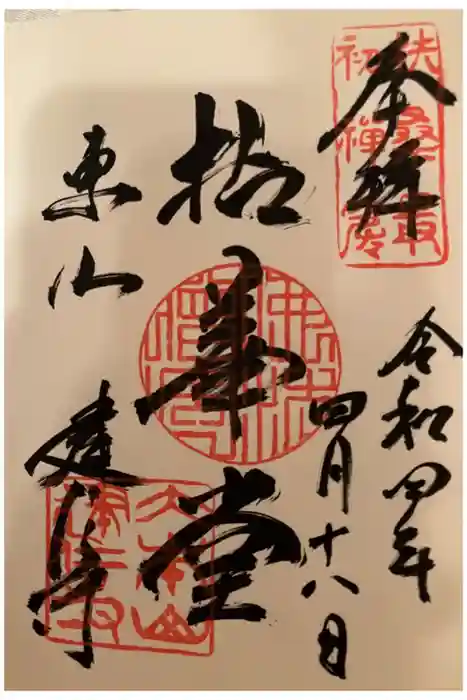 奉拝
扶桑最
初禅窟
令和四年
四月十八日
拈華堂
東山
建仁寺
大本山
建仁寺